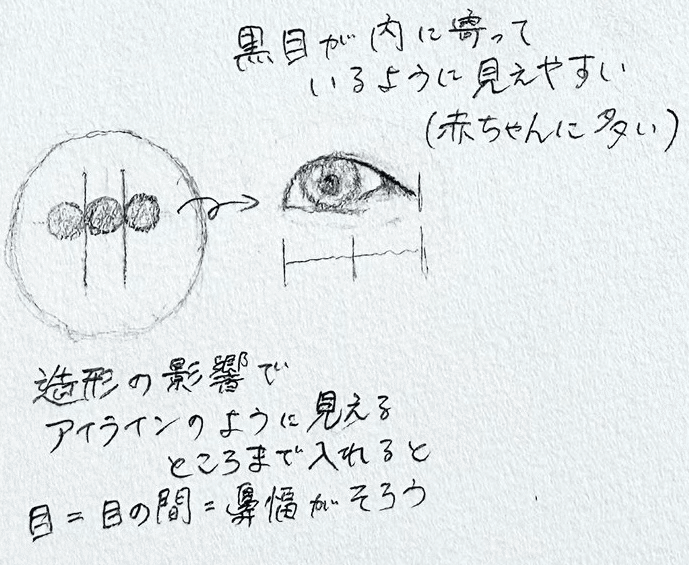 黒目が内に寄って
いるように見えやすい
(赤ちゃんに多い)
造形の影響で
アイラインのように見える
ところまで入れると
目=目の間=鼻幅がそろう